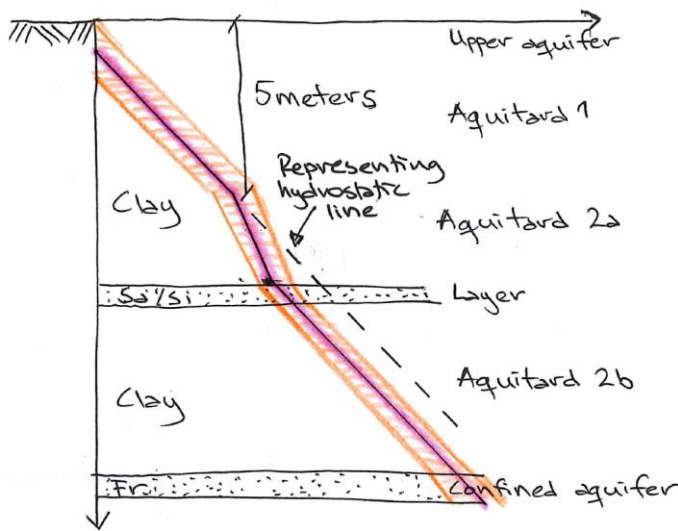 Upper aquifer
5 meters
Aquitard 1
Representing
hydrostatic
line
Clay
Aquitard 2a
Sa/si
Layer
Aquitard 2b
Clay
Fr.
Confined aquifer